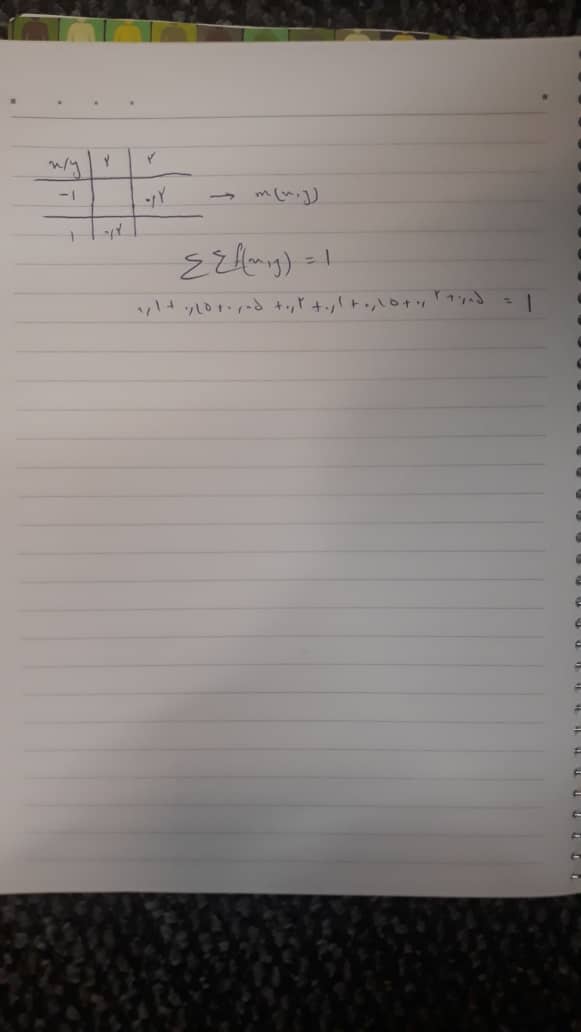 x/y | ۲ | ۳
-1 | | ۰,۲ → m(x,y)
۱ | ۰,۲ |
ΣΣf(x,y) = 1
۰,۱+۰,۱۵+۰,۰۵+۰,۲+۰,۱+۰,۱۵+۰,۲+۰,۰۵ = 1